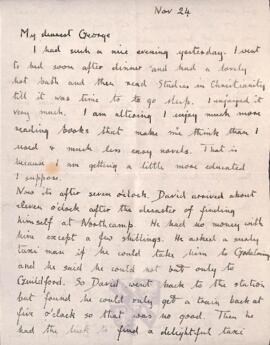 Nov 24
My dearest George
I had such a nice evening yesterday. I went
to bed soon after dinner and had a lovely
hot bath and then read Studies in Christianity
till it was time to to go sleep. I enjoyed it
very much. I am altering I enjoy much more
reading books that make me think than I
used & much less easy novels. That is
because I am getting a little more educated
I suppose.
Now its after seven o'clock. David arrived about
eleven o'clock after the disaster of finding
himself at Northcamp. He had no money with
him except a few shillings. He asked a surly
taxi man if he could take him to Godalming
and he said he could not but only to
Guildford. So David went back to the station
but found he could only get a train back at
five o'clock so that was no good. Then he
had the luck to find a delightful taxi